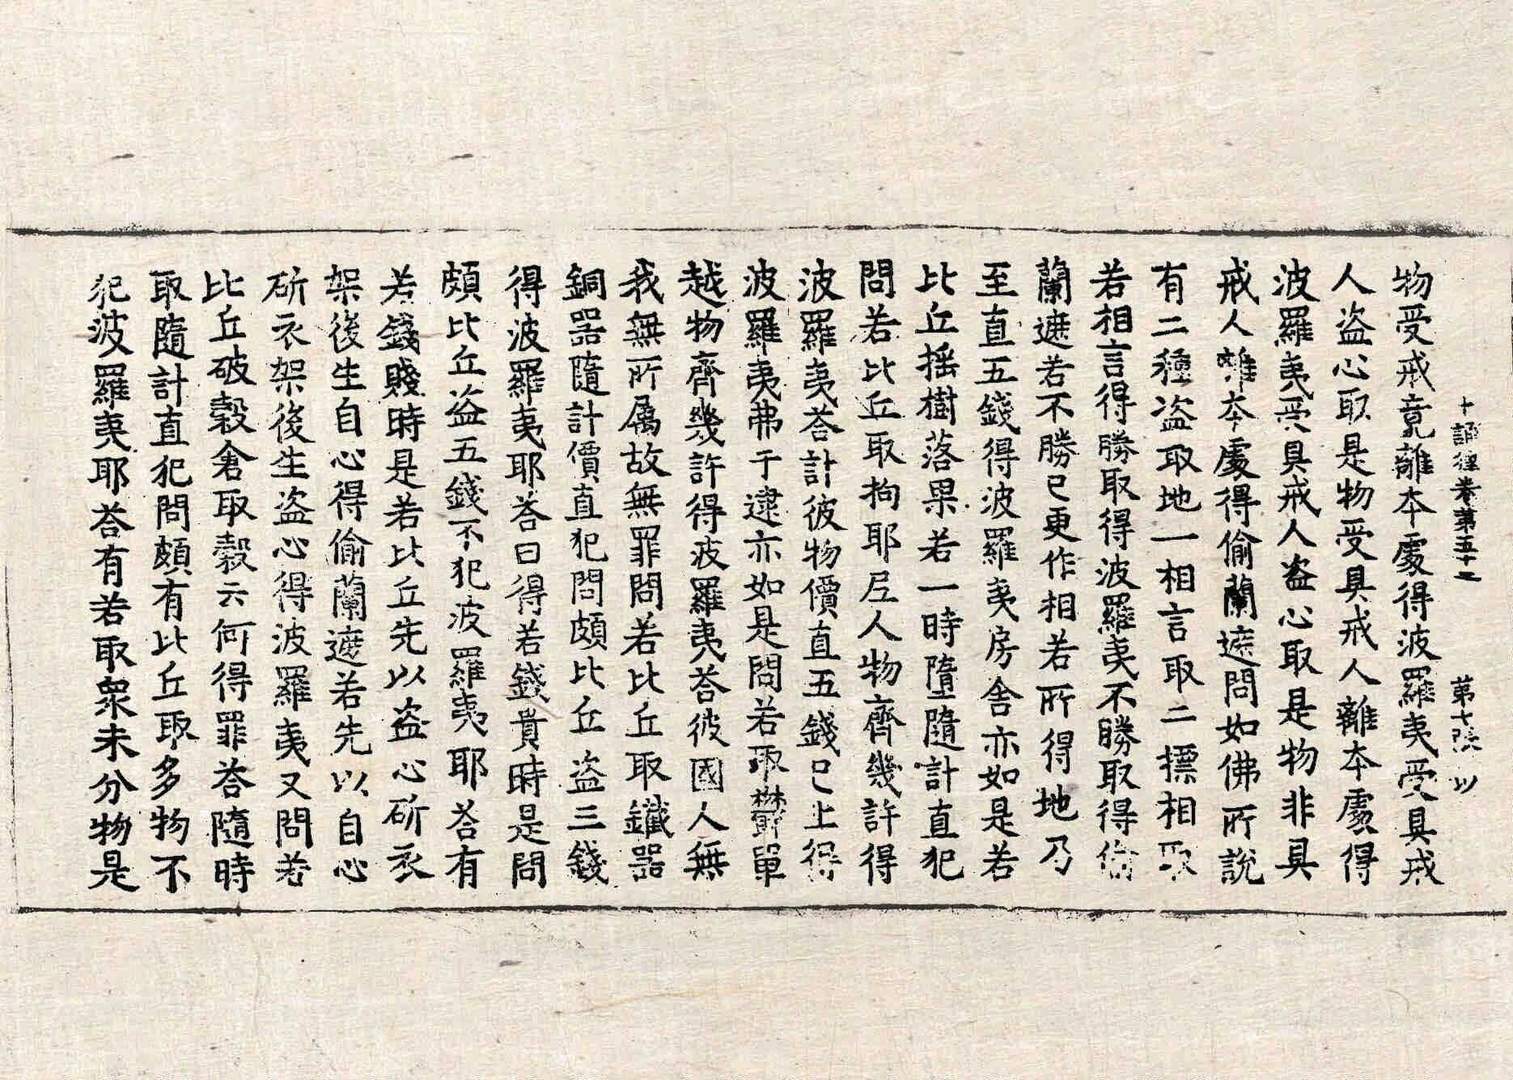 十誦律卷第五十二　第七張　以
物受戒竟離本處得波羅夷受具戒
人盗心取是物受具戒人離本處得
波羅夷受具戒人盗心取是物非具
戒人離本處得偷蘭遮問如佛所說
有二種盗取地一相言取二摽相取
若相言得勝取得波羅夷不勝取得偷
蘭遮若不勝已更作相若所得地乃
至直五錢得波羅夷房舍亦如是若
比丘揺樹落果若一時墮隨計直犯
問若比丘取拘耶尼人物齊幾許得
波羅夷荅計彼物價直五錢已上得
波羅夷弗于逮亦如是問若取欝單
越物齊幾許得波羅夷荅彼國人無
我無所属故無罪問若比丘取鐵器
銅器隨計價直犯問頗比丘盗三錢
得波羅夷耶荅曰得若錢貴時是問
頗比丘盗五錢不犯波羅夷耶荅有
若錢賤時是若比丘先以盗心斫衣
架後生自心得偷蘭遮若先以自心
斫衣架後生盗心得波羅夷又問若
比丘破穀倉取穀云何得罪荅隨時
取隨計直犯問頗有比丘取多物不
犯波羅夷耶荅有若取衆未分物是